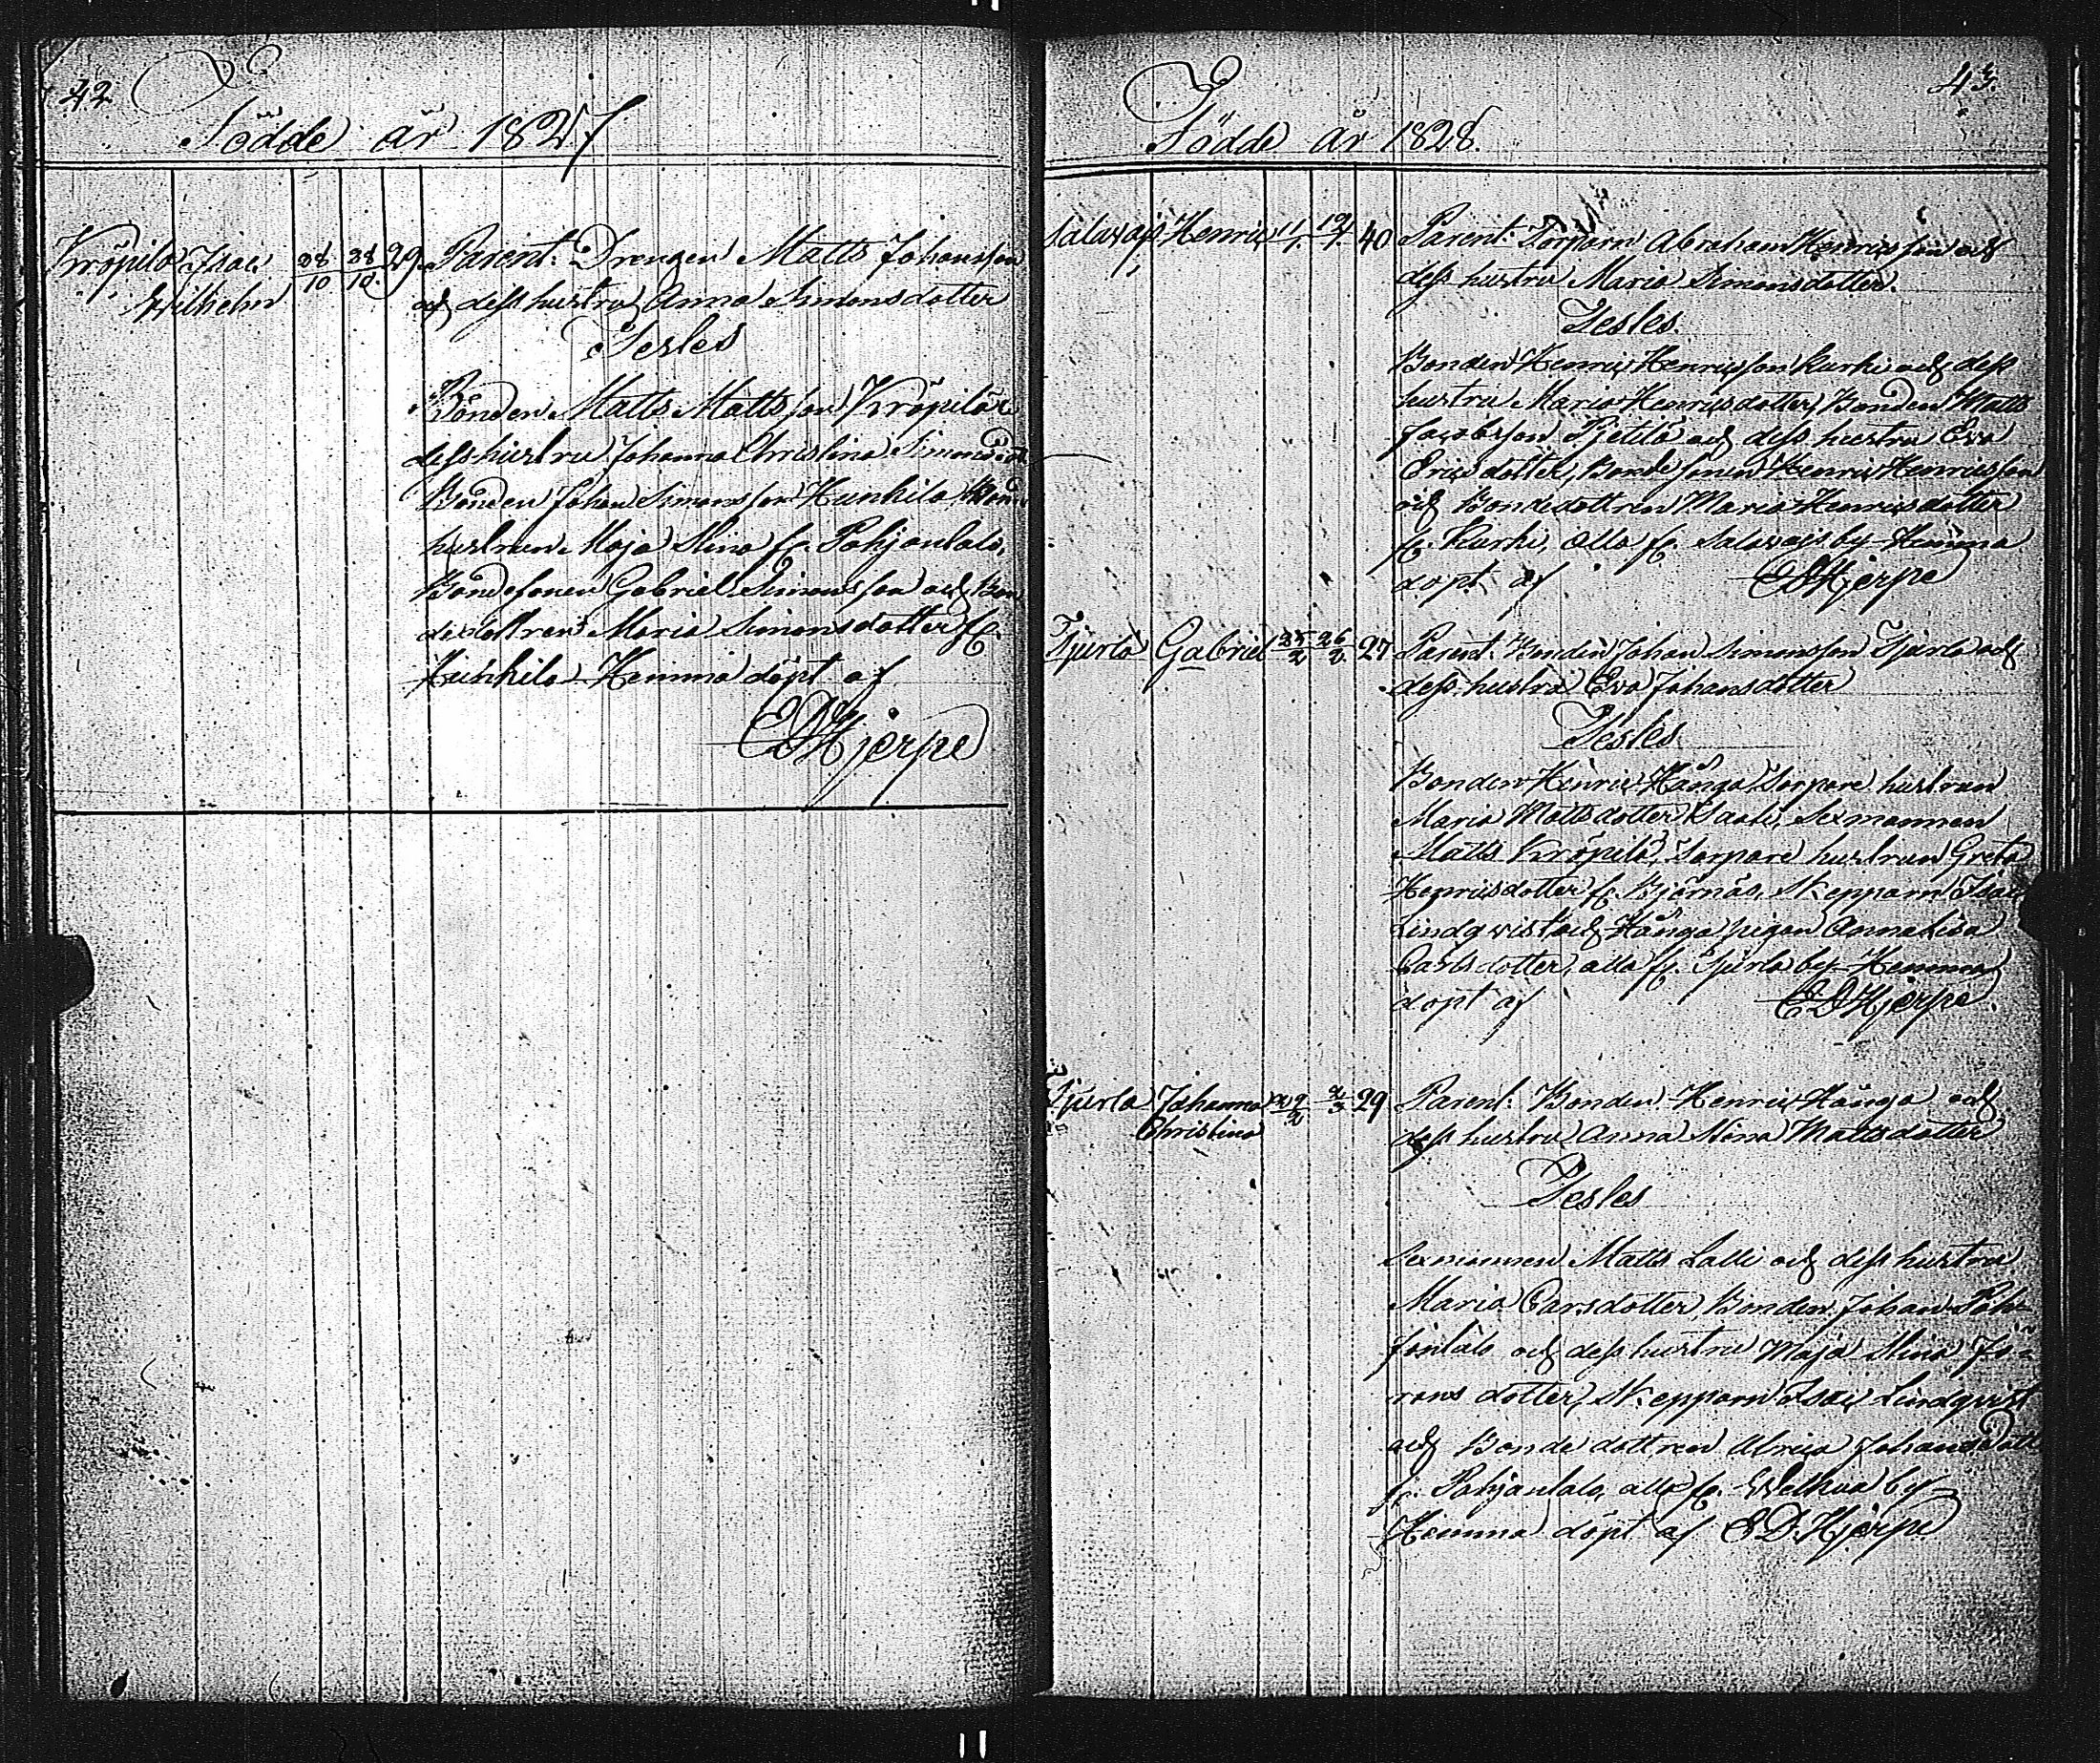 42.
Födde år 1827
Kröpilä Isac 28/10 28/10. 29. Parent. Drengen Matts Johansson
Wilhelm och dess hustru Anna Simonsdotter
Testes
Bonden Matts Mattsson Kröpilä
dess hustru Johanna Christina Simonsd
Bonden Johan Simonsson Hunkila
hustrun Maja Stina fr. Pohjantalo,
Bondesonen Gabriel Simonsson och Bon
dedottren Maria Simonsdotter fr.
Hunkila Hemma döpt af
EDHjerpe
43.
Födde år 1828.
Salavais Henric 11/1. 12/1. 40 Parent. Torparn Abraham Henricsson och
dess hustru Maria Simonsdotter.
Testes.
Bonden Henric Henricsson Kurki och dess
hustru Maria Henricsdotter, Bonden Matts
Jacobsson och dess hustru Eva
Ericsdotter, Bondesonen Henric Henricsson
och Bondedottren Maria Henricsdotter
fr. Kurki, alla fr. Salavais by Hemma
döpt af EDHjerpe
Tjurla Gabriel 25/2 26/2. 27 Parent. Bonden Johan Simonsson Tjurla och
dess hustru Eva Johansdotter
Testes
Bonden Henric Hånga Torpare hustrun
Maria Mattsdotter Sexmannen
Matts Kröpilä, Torpare hustrun Greta
Henricsdotter fr. Björnäs, Skepparn Isac
Lindqvist och Hånga pigan Anna Lisa
Carlsdotter, alla fr. Tjurla by Hemma
döpt af EDHjerpe
Tjurla Johanna 29/2 2/3 29 Parent. Bonden Henric Hånga och
Christina dess hustru Anna Stina Mattsdotter
Testes
Sexmannen Matts Lalli och dess hustru
Maria Carsdotter, Bonden Johan Poh-
jontalo och dess hustru Maja Stina Jö-
rans dotter, Skepparn Isac Lindqvist
och Bonde dottren Ulrica Johansdott
fr. Pohjantalo, alla fr. Welhua by
Hemma döpt af EDHjerpe